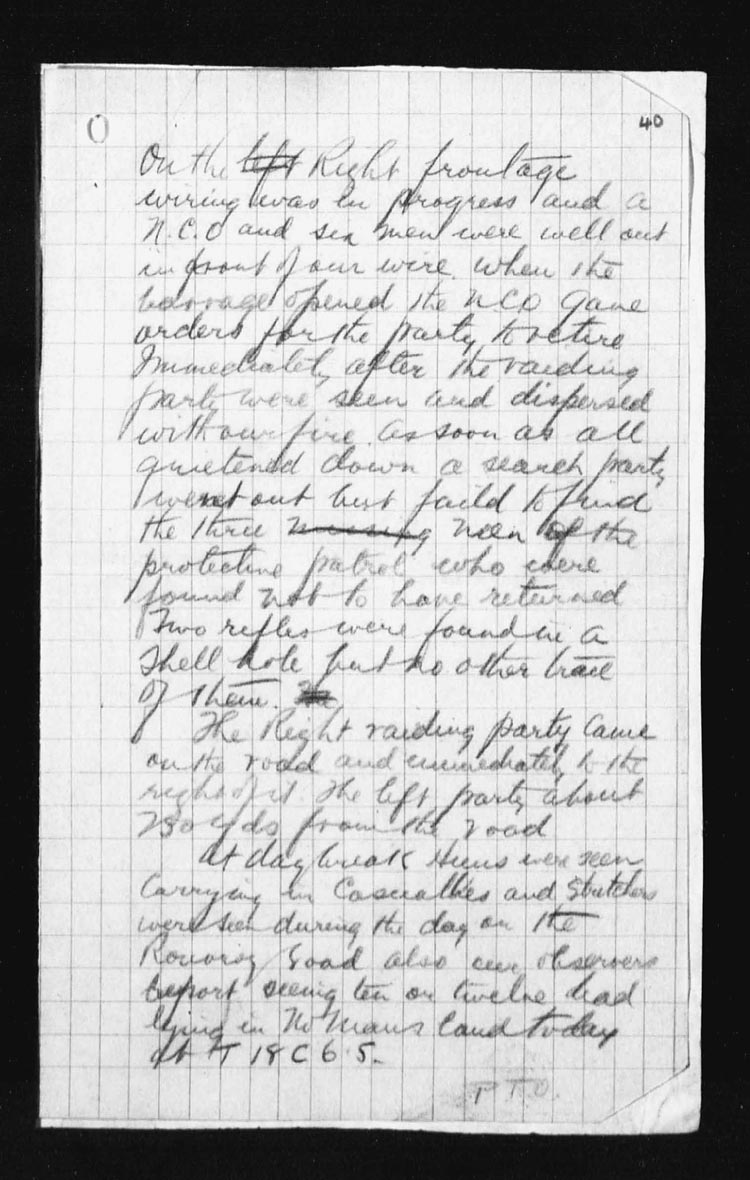 40
On the left Right frontage
wiring was in progress and a
N.C.O and six men were well out
in front of our wire. When the
barrage opened the NCO gave
orders for the party to retire
Immediately after the raiding
party were seen and dispersed
with our fire. As soon as all
quietened down a search party
went out but faild to find
the three missing men of the
protective patrol who were
found not to have returned
Two rifles were found in a
Shell hole but no other trace
of them.
The Right raiding party came
on the road and immediately to the
right of it. The left party about
250 yds from the road
At daybreak Huns were seen
Carrying in Casualties and Stretchers
were seen during the day on the
road also our observers
report seeing ten or twelve dead
lying in No Mans Land today
at T 18 C 6.5.
P.T.O.